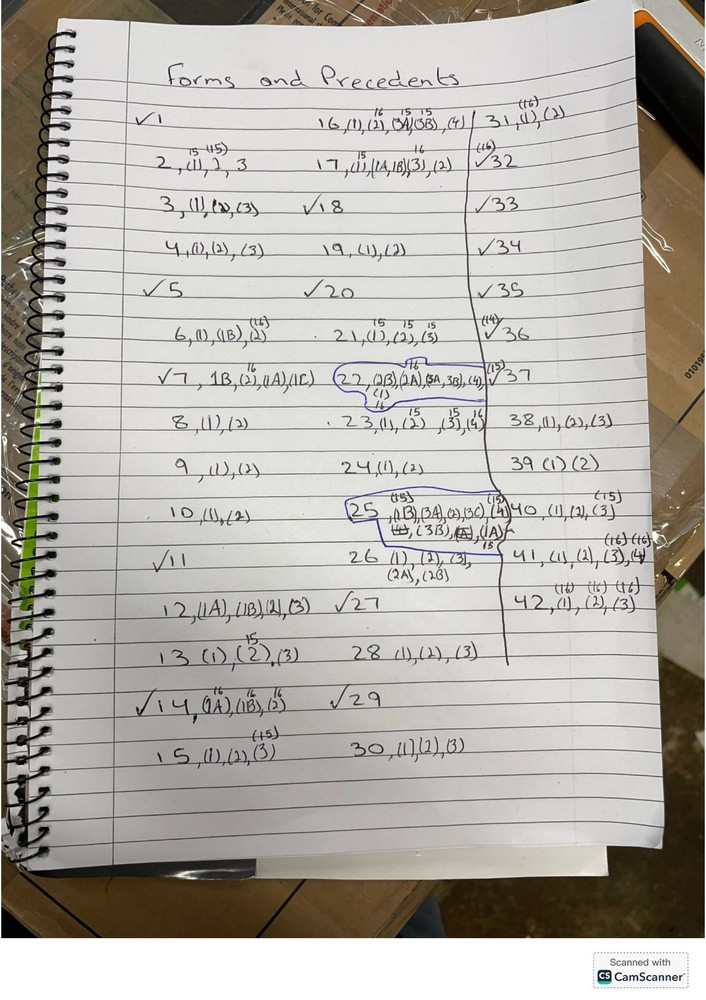 Forms and Precedents
✓1
2, (1), 2, 3
15 (15)
3, (1), (2), (3)
4, (1), (2), (3)
✓5
6, (1), (1B), (2)
(16)
✓7, 1B, (2), (1A), (1C)
16
8, (1), (2)
9, (1), (2)
10, (1), (2)
✓11
12, (1A), (1B), (2), (3)
13 (1), (2), (3)
15
✓14, (1A), (1B), (2)
16 16 16
15, (1), (2), (3)
(15)
16, (1), (2), (3A), (3B), (4)
16 15 15
17, (1), (1A, 1B), (3), (2)
15 16
✓18
19, (1), (2)
✓20
21, (1), (2), (3)
15 15 15
22, (2B), (2A), (3A, 3B), (4)
16
(1)
16
23, (1), (2), (3), (4)
15 15 16
24, (1), (2)
25, (1B), (3A), (2), (3C), (4)
(15) (15)
(3B), (1A)
15
26 (1), (2), (3),
(2A), (2B)
✓27
28 (1), (2), (3)
✓29
30, (1), (2), (3)
31, (1), (2)
(16)
(16)
✓32
✓33
✓34
✓35
(14)
✓36
(15)
✓37
38, (1), (2), (3)
39 (1) (2)
40, (1), (2), (3)
(15)
41, (1), (2), (3), (4)
(16) (16)
42, (1), (2), (3)
(16) (16) (16)
Scanned with
CS CamScanner